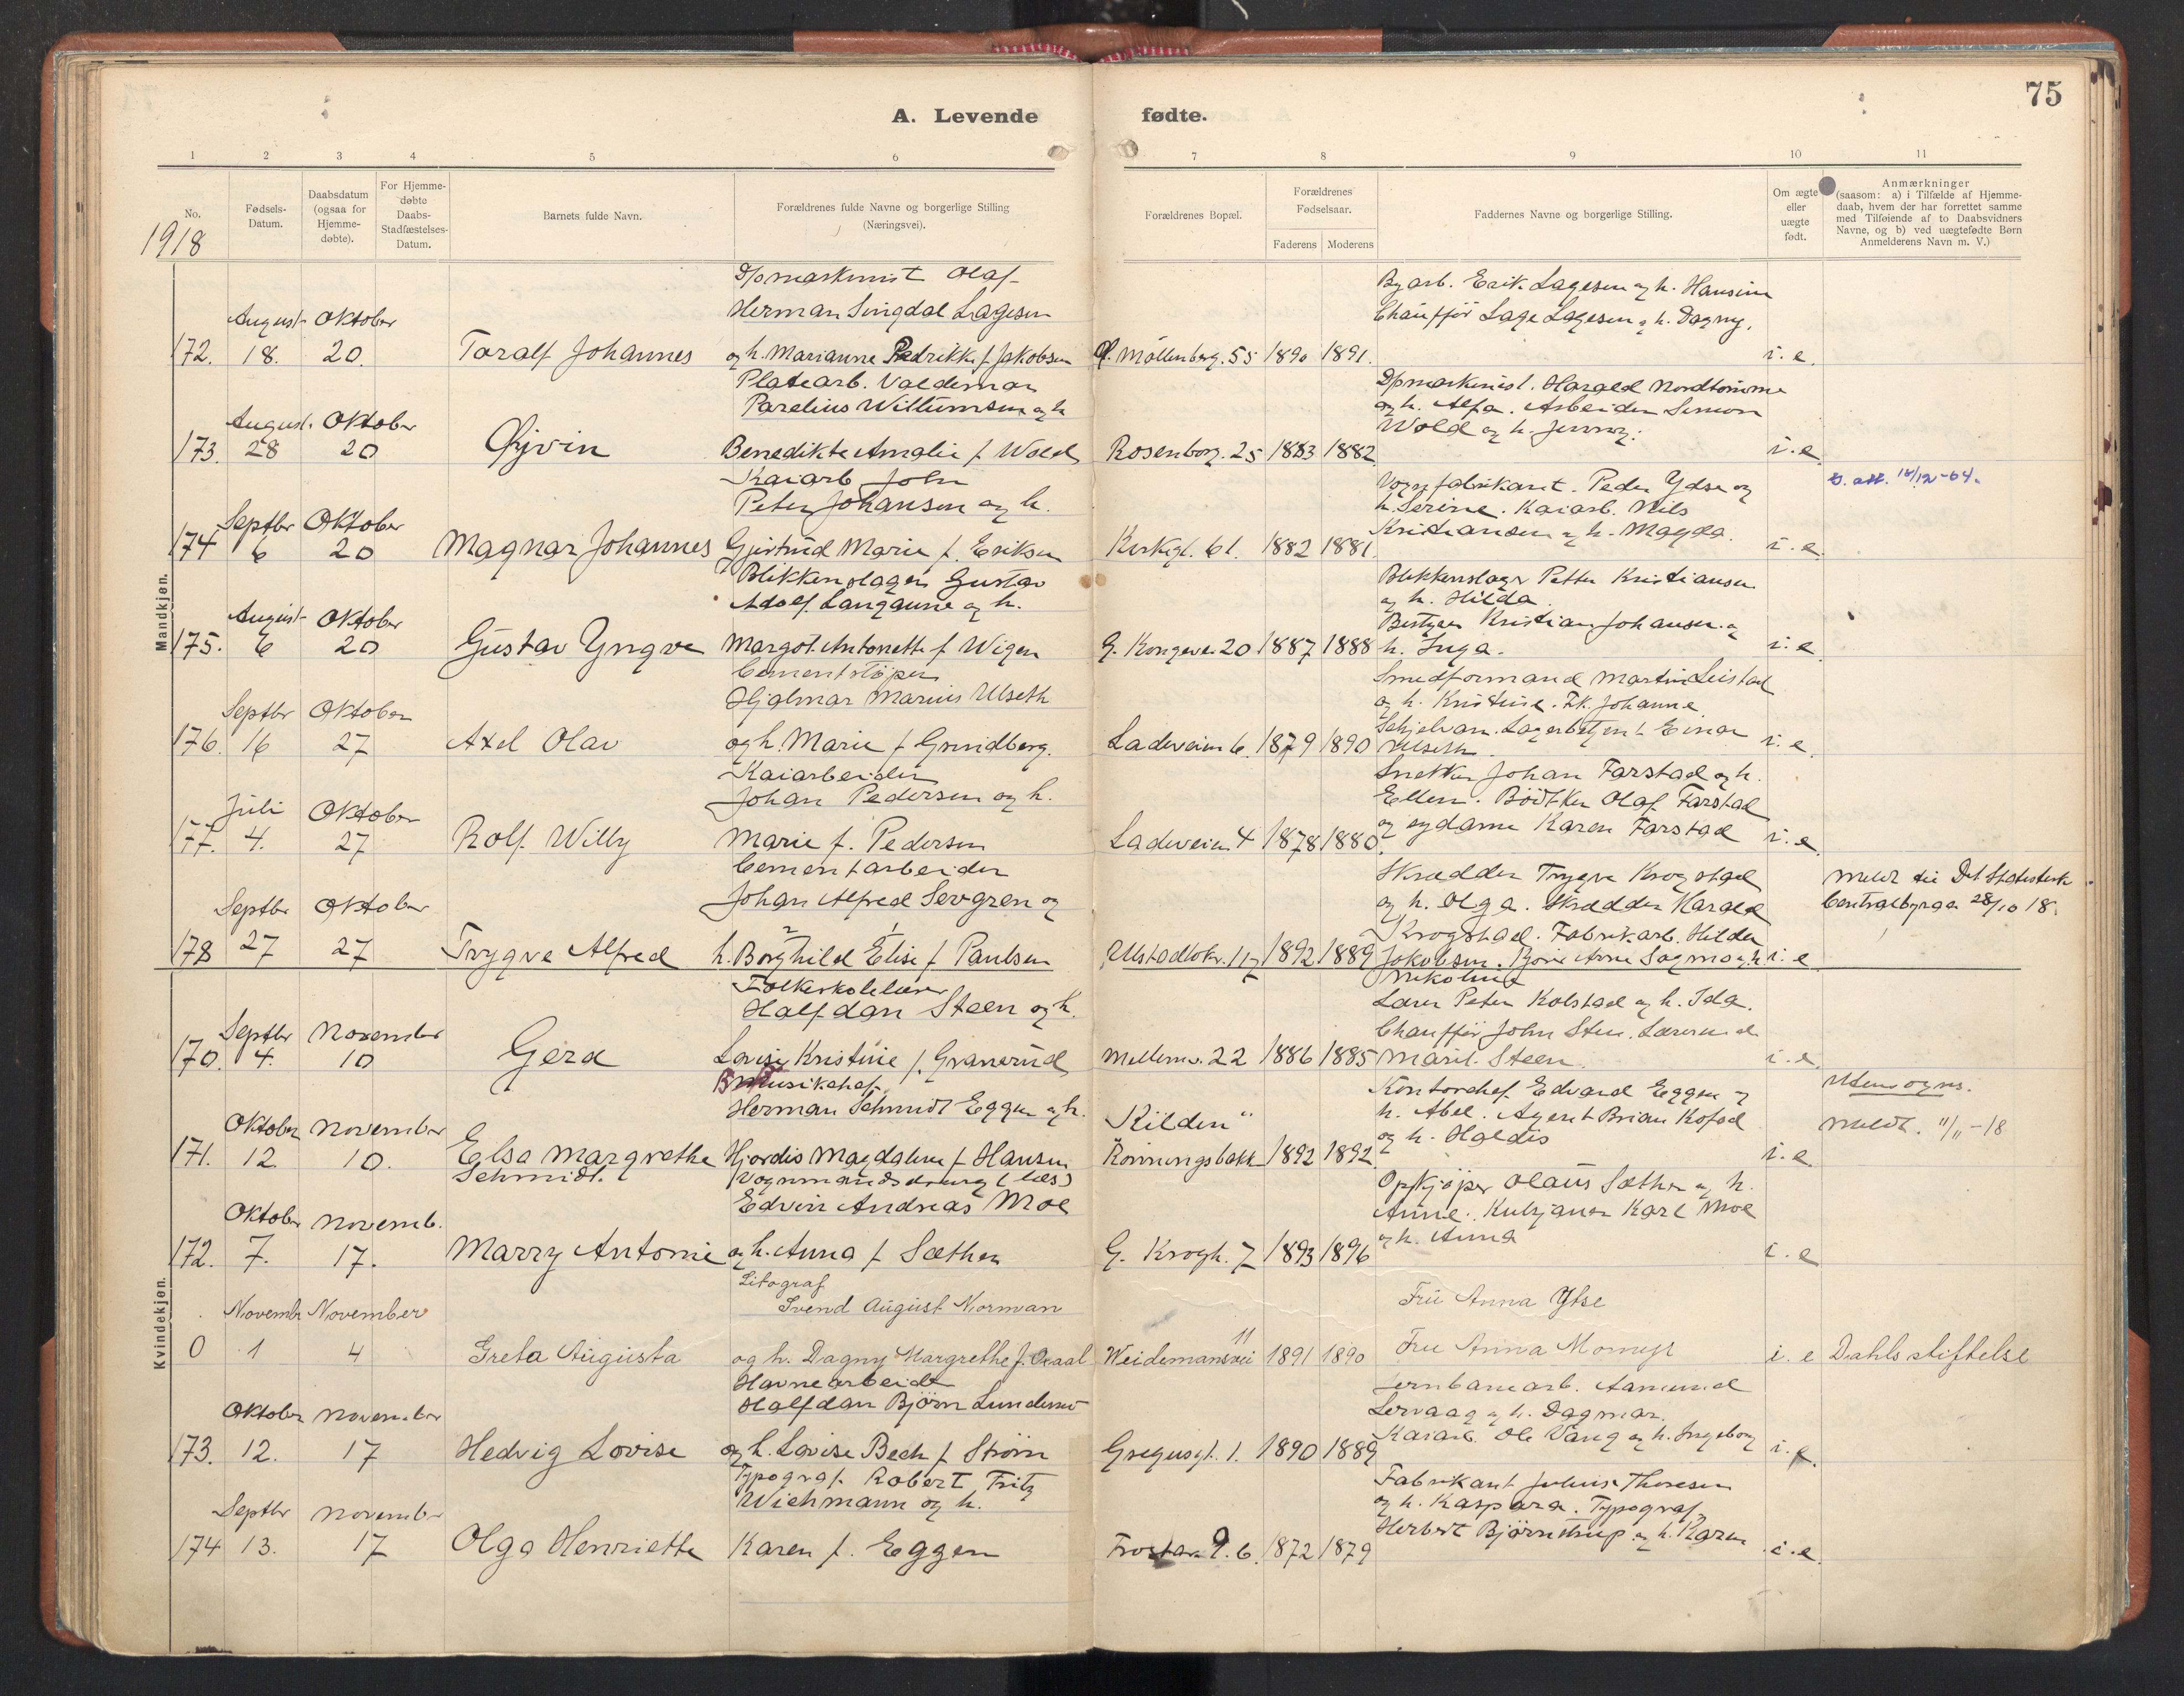 75
A. Levende fødte.
1 2 3 4 5 6 7 8 9 10 11
No.
Fødsels-Datum.
Daabsdatum (ogsaa for Hjemme-døbte).
For Hjemme-døbte Daabs-Stadfæstelses-Datum.
Barnets fulde Navn.
Forældrenes fulde Navne og borgerlige Stilling
(Næringsvei).
Forældrenes Bopæl.
Forældrenes Fødselsaar.
Faderens Moderens
Faddernes Navne og borgerlige Stilling.
Om ægte eller uægte født.
Anmærkninger
(saasom: a) i Tilfælde af Hjemme-
daab, hvem der har forrettet samme
med Tilføiende af to Daabsvidners
Navne, og b) ved uægtefødte Børn
Anmelderens Navn m. V.)
1918
Mandkjøn.
D/pmaskinist Olaf
Herman Singdal Lagesen
Byarb. Erik Lagesen og h. Hansine
Chauffør Lage Lagesen og h. Dagny.
August Oktober
172. 18. 20. Toralf Johannes og h. Marianne Fredrikke f. Jakobsen Ø. Møllenberg. 55 1890 1891. i. e.
Platearb. Valdemar
Parelius Willumsen og h
D/pmaskinist. Harald Nordtømme
og h. Alfa. Arbeider Simon
Wold og h. Jenny.
August. Oktober
173. 28 20 Øjvin Benedikte Amalie f. Wold Rosenborg. 25 1883 1882 i. e.
Kaiarb John
Peter Johansen og h.
Vognfabrikant. Peder Ydse og
h. Serine. Kaiarb. Nils
Kristiansen og h. Magda.
18/12-64.
Septbr Oktober
174 6 20 Magnar Johannes Gjertrud Marie f. Eriksen Kirkegt. 61. 1882 1881. i. e.
Blikkenslager Gustav
Adolf Langaune og h.
Blikkenslager Petter Kristiansen
og h. Hilda.
Bestyrer Kristian Johansen og
August Oktober
175. 6 20 Gustav Yngve Margot Antonette f Wigen G. Kongevei 20 1887 1888 h. Inga. i. e.
Cementstøper
Hjalmar Marius Ulseth
Smedformand Martin Leistad
og h. Kristine. Frk. Johanne
Schjelvan. Lagerbetjent Einar
Ulseth
Septbr Oktober
176. 16 27 Axel Olav og h. Marie f Grundberg. Ladeveien 6. 1879 1890 i. e.
Kaiarbeider
Johan Pedersen og h.
Snekker Johan Farstad og h.
Ellen. Bødker Olaf Farstad
og sydame Karen Farstad
Juli Oktober
177. 4. 27 Rolf Willy Marie f. Pedersen Ladeveien 4 1878 1880. i. e.
Cementarbeider
Johan Alfred Sevgren og
Skrædder Trygve Krogstad
og h. Olga. Skrædder Harald
Krogstad. Fabrikarb. Hilda
Meldt til Det Statistiske
Centralbyraa 28/10 18.
Septbr Oktober
178 27 27 Trygve Alfred h. Borghild Elise f Paulsen 1892 1889 Jakobsen. i. e
Folkeskolelærer
Halfdan Steen og h.
Nikoline
Lærer Peter Kolstad og h. Ida.
Chauffør John Steen. Lærerinde
Marit Steen
Kvindekjøn.
Septbr November
170. 4. 10 Gerd Lovise Kristine f. Granerud Mellemv. 22 1886 1885 i. e.
Musikchef
Herman Schmidt Eggen og h.
Kontorchef Edvard Eggen og
h. Abel. Agent Brian Kofod
og h. Haldis
Utensogns.
Meldt. 11/11-18
Oktober November
"Kilden"
171. 12 10. Elsa Margrethe Schmidt. Hjordis Magdalene f Hansen Rønningsbakk 1892 1892 i. e
Vognmandsdreng (læs)
Edvin Andreas Moe
Opkjøper Olaus Sæther og h.
Anne. Karl Moe
og h. Anna
Oktober Novemb.
172. 7. 17. Marry Antonie og h. Anna f Sæther G. Krogh. 7 1893 1896 i. e
Litograf
Svend August Norman
Fru Anna Ytse
Novembr November
0 1 4 Greta Augusta og h. Dagny Margrethe f. Qvaal Weidemansvei 11 1891 1890 Fru Anna i. e Dahls stiftelse
Havnearbeider
Halfdan Bjørn Lundemo
Jernbanearb. Aamund
Lervaag og h. Dagmar.
Kaiarb. Ole Vang og h. Ingeborg
Oktober November
173. 12. 17 Hedvig Lovise og h. Lovise Bech f Strøm Gregusgt. 1. 1890 1889 i. e.
Typograf. Robert Fritz
Wichmann og h.
Fabrikant Julius Thoresen
og h. Kaspara. Typograf
Herbert Bjørnstrup og h. Karen
Septbr November
174 13. 17 Olga Henriette Karen f. Eggen 1872 1879 i. e.